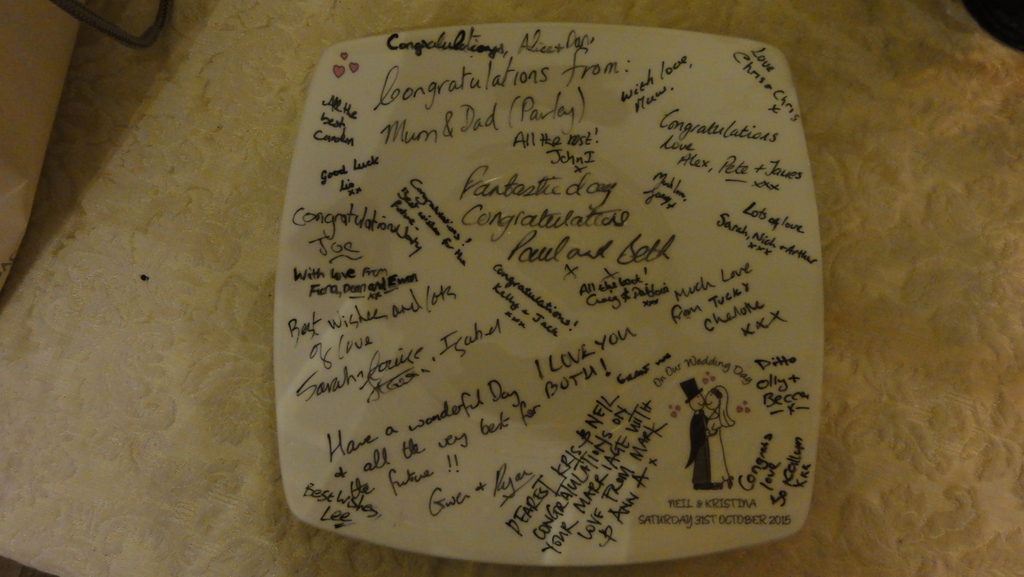 Congratulations, Alice + Dan
Congratulations from:
Mum & Dad (Parley)
With love,
Mum.
Love
Chris + Chris
x
All the
best
Carolin
All the best!
John I
x
Congratulations
Love
Alex, Pete + James
xxx
Good luck
Liz xx
Fantastic day
Congratulations
Paul and Beth
x x
Congratulations!
Best wishes for the
Future
Much love,
Lots of love
Sarah, Nick + Arthur
xxx
Congratulations
Joe
With love from
Fiona, Dean and Ewan
xx
Congratulations!
Kelly + Jack
xxx
All the best!
Craig &
xxx
Much Love
from Tucky
Charlotte
xxx
Best wishes and lots
of love
Sarah, Louise, Isabel
I LOVE YOU
BOTH!
Ditto
Olly +
Becca
x
Have a wonderful Day
+ all the very best for
the future!!
Gwen + Ryan
Best wishes,
Lee
DEAREST KRIS & NEIL
CONGRATULATIONS ON
YOUR MARRIAGE WITH
LOVE FROM MARK
& ANN A. x
On Our Wedding Day
Congrats
love
Jo + Callum
xx
NEIL & KRISTINA
SATURDAY 31ST OCTOBER 2015